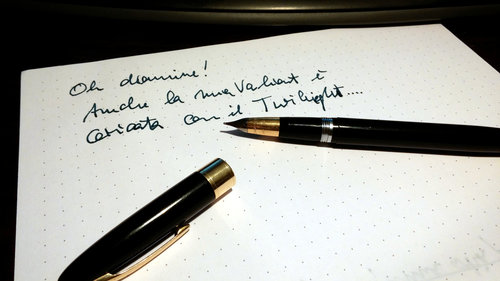 Oh dammine!
Anche la mia Valiant è
caricata con il Twilight....